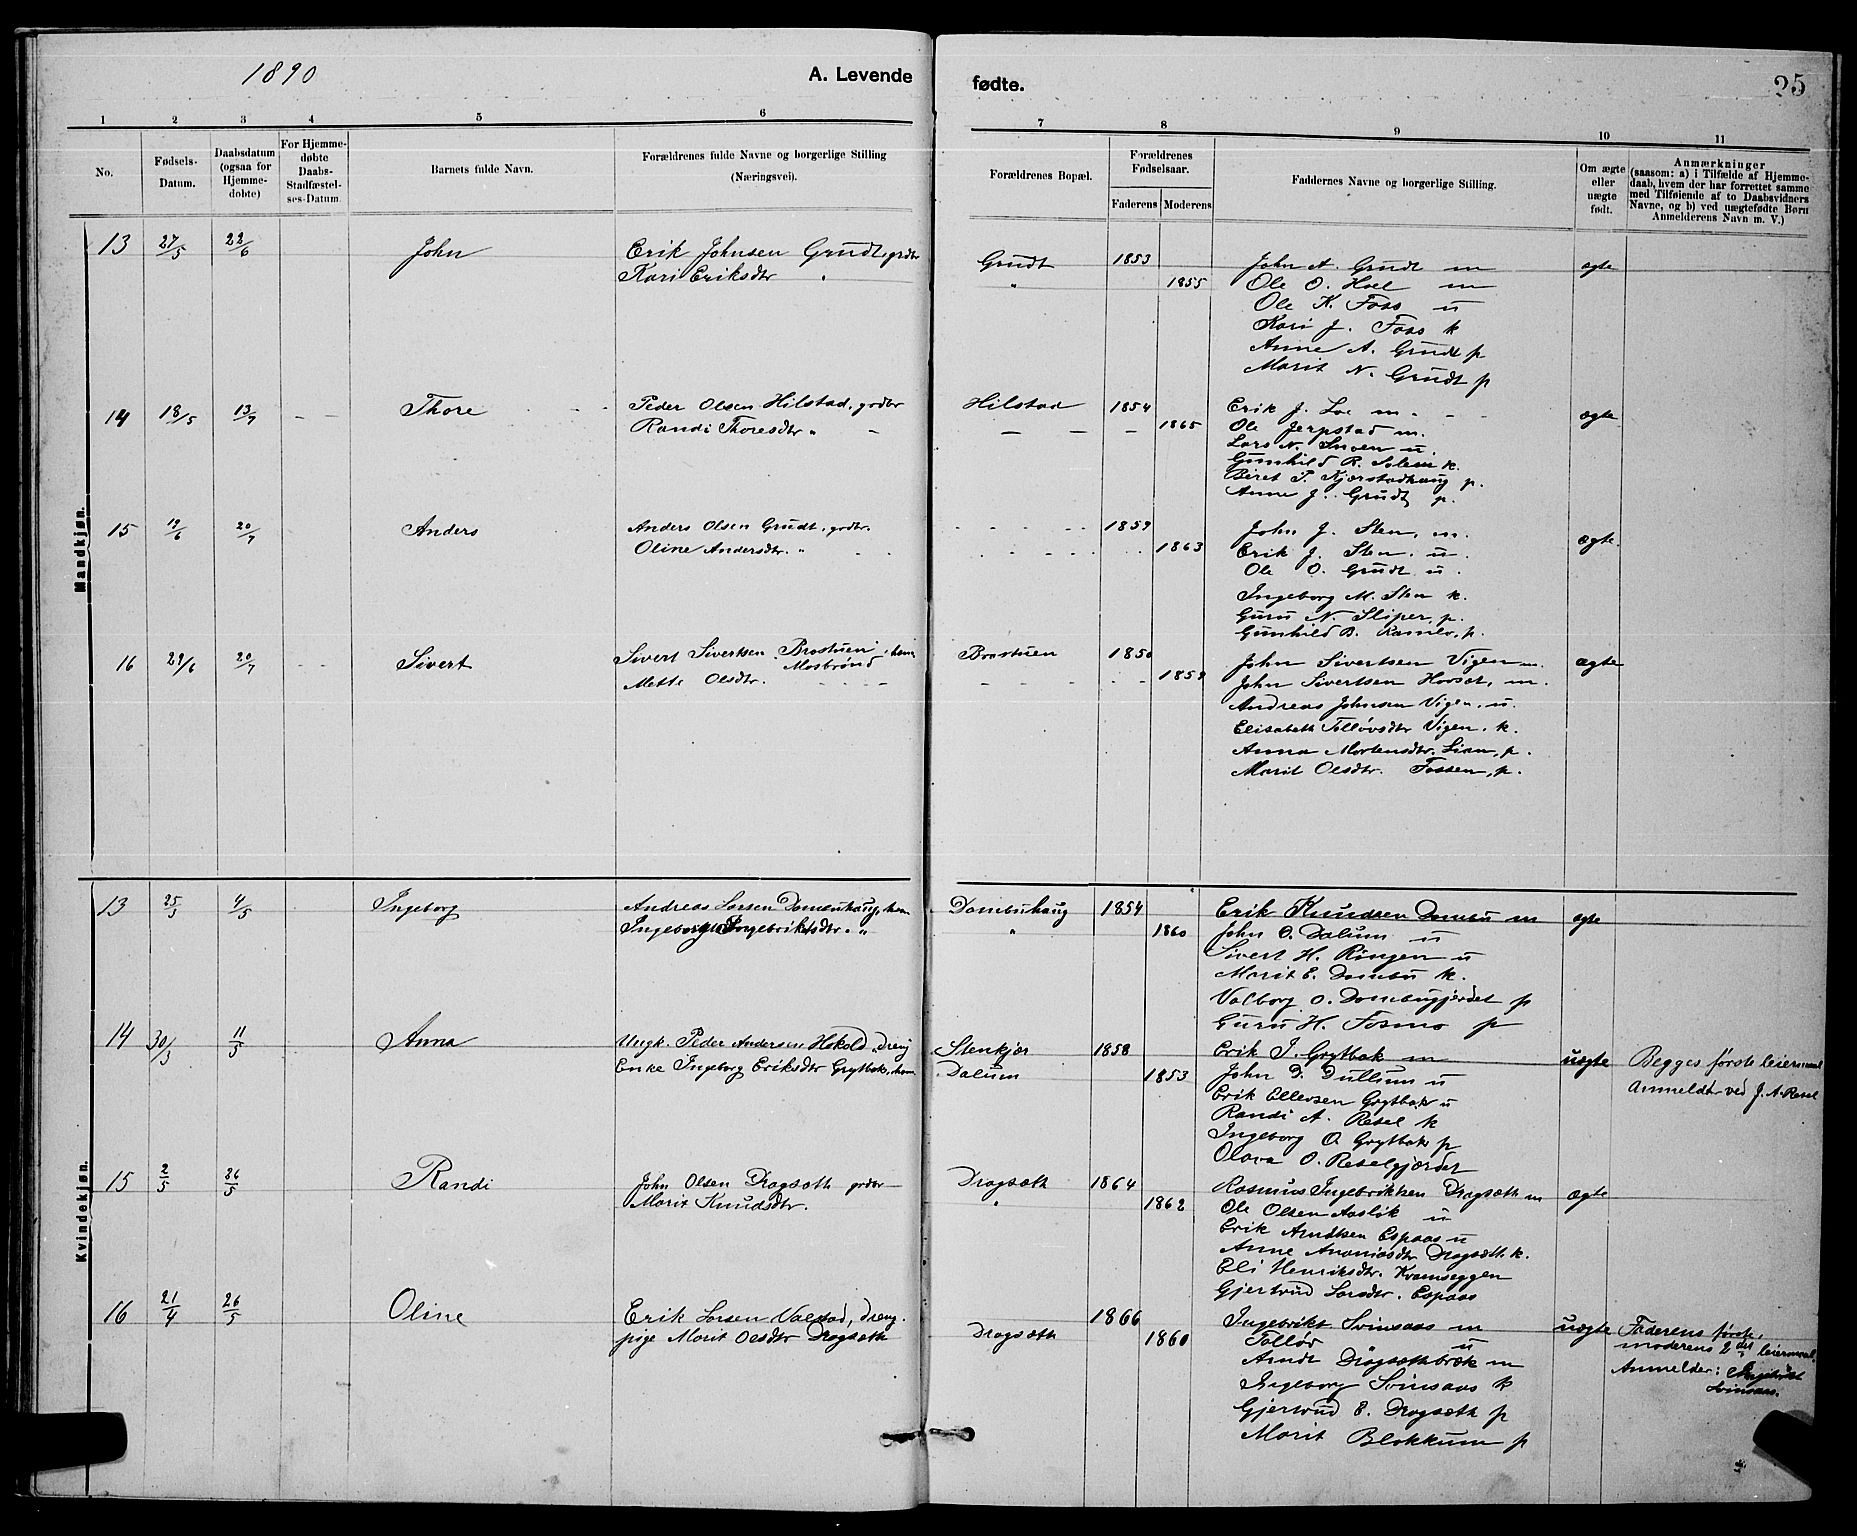 1890
A. Levende fødte.
25
1 2 3 4 5 6 7 8 9 10 11
No.
Fødsels-Datum.
Daabsdatum (ogsaa for Hjemme-døbte)
For Hjemme-døbte Daabs-Stadfæstel-ses-Datum
Barnets fulde Navn.
Forældrenes fulde Navne og borgerlige Stilling (Næringsvei).
Forældrenes Bopæl.
Forældrenes Fødselsaar.
Faderens Moderens
Faddernes Navne og borgerlige Stilling.
Om ægte eller uægte født.
Anmærkninger (saasom: a) i Tilfælde af Hjemme-daab, hvem der har forrettet samme med Tilføiende af to Daabsvidners Navne, og b) ved uægtefødte Børn Anmelderens Navn m. V.)
Mandkjøn.
13 27/5 22/6 John Erik Johnsen Grudt, grdbr Grudt 1853 John A. Grudt m ægte
Kari Eriksdtr " " 1855 Ole O. Hoel m
Ole K. Foss u
Kari J. Foss k
Anne A. Grudt p
Marit N. Grudt p
14 18/5 13/7 - - Thore Peder Olsen Hilstad, grdbr Hilstad 1854 Erik J. Loe m. ægte
Randi Thoresdtr " 1865 Ole Jerpstad m.
Lars N. Snoen u.
Gunhild R. Solem k.
Beret P. Kjorstadhaug p.
Anne J. Grudt p.
15 19/6 20/7 Anders Anders Olsen Grudt, grdbr. 1859 John J. Sten, m. ægte.
Oline Andersdtr. " 1863 Erik J. Sten, u.
Ole O. Grudt u.
Ingeborg M. Sten k.
Guru N. Sliper, p.
Gunhild B. Ramlo, p.
16 29/6 20/7 - - Sivert Sivert Sivertsen Brostuen, Brostuen 1850 John Sivertsen Vigen m. ægte
Mosbrönd
Mette Olsdtr. 1859 John Sivertsen Hovset, m.
Andreas Johnsen Vigen, u.
Elisabeth Tollövsdtr Vigen, k.
Anna Mortensdtr. Lian, p.
Marit Olsdtr. Fossen, p.
Kvindekjøn.
13 25/3 4/5 Ingeborg Andreas Larsen Dombuhaug, Dombuhaug 1854 Erik Knudsen Dombu m ægte
Ingeborg Ingebriktsdtr. " " 1860 John O. Dalum u
Sivert H. Ringen u
Marit E. Dombu k.
Valborg O. Dombugjerdet p
Guru H. Fosmo p
14 30/3 11/5 Anna Ungk. Peder Andersen Hokold, dreng Stenkjær 1858 Erik J. Grytbak m uægte Begges første leiermaal
Enke Ingeborg Eriksdtr Grytbak, Dalum 1853 John D. Dullum u Anmeldt ved J. A. Resel
Erik Ellevsen Grytbak u
Randi A. Resel k
Ingeborg O. Grytbak p
Olava O. Reselgjærdet
15 2/5 26/5 Randi John Olsen Dragsæth grdbr Dragsæth 1864 Rasmus Ingebriktsen Dragsæth m ægte
Marit Knudsdtr. " 1862 Ole Olsen Aaslök u
Erik Arndtsen Espaas u
Anne Ananiasdtr Dragsæth. k.
Eli Henriksdtr. Kvamseggen
Gjertrud Larsdtr. Espaas
16 21/4 26/5 Oline Erik Larsen Valstad, dreng. 1866 Ingebrikt Svinsaas m uægte Faderens første,
pige Marit Olsdtr Dragsæth Dragsæth 1860 Tollöv u moderens 2det leiermaal.
Arndt Dragsæthbræk m Anmelder: Ingebrikt
Ingeborg Svinsaas k Svinsaas.
Gjertrud E. Dragsæth p
Marit Blokkum p